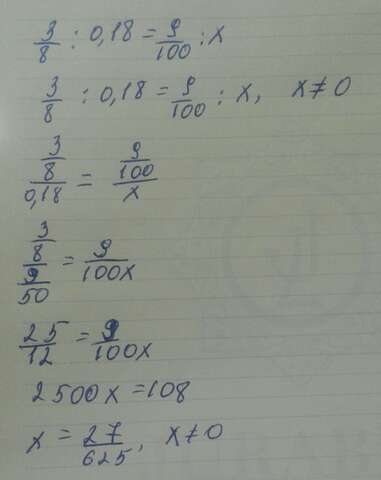 3/8 : 0,18 = 9/100 : x
3/8 : 0,18 = 9/100 : x, x≠0
(3/8)/(0,18) = (9/100)/x
(3/8)/(9/50) = 9/(100x)
25/12 = 9/(100x)
2500x = 108
x = 27/625, x≠0